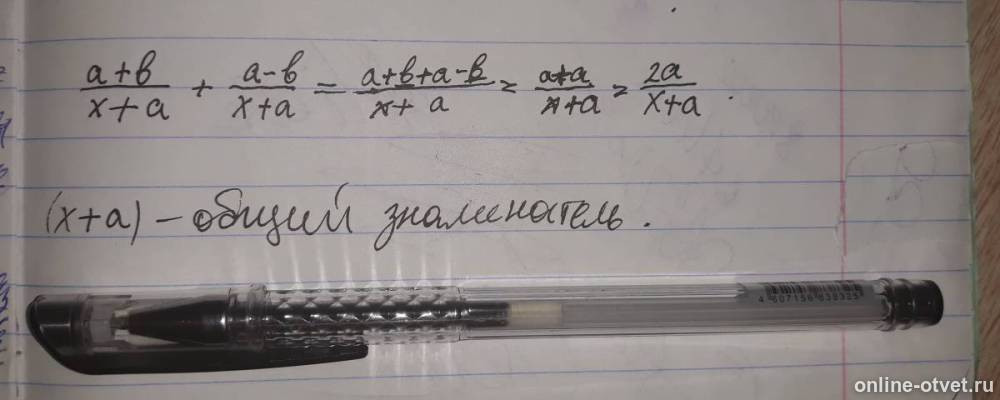 (a+b)/(x+a) + (a-b)/(x+a) = (a+b+a-b)/(x+a) = (a+a)/(x+a) = 2a/(x+a).
(x+a) - общий знаменатель.
4 607156 838325
online-otvet.ru